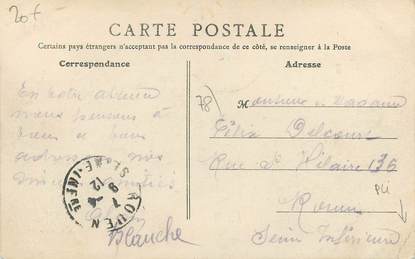 20f
CARTE POSTALE
Certains pays étrangers n'acceptant pas la correspondance de ce côté, se renseigner à la Poste
Correspondance
Adresse
En notre absence
nous pensons à
vous
nos
amitiés
Blanche
ROUEN
SEINE-INFRE
78
Monsieur & Madame
Félix Delcourt
Rue St Hilaire 136
Rouen
Seine Inférieure